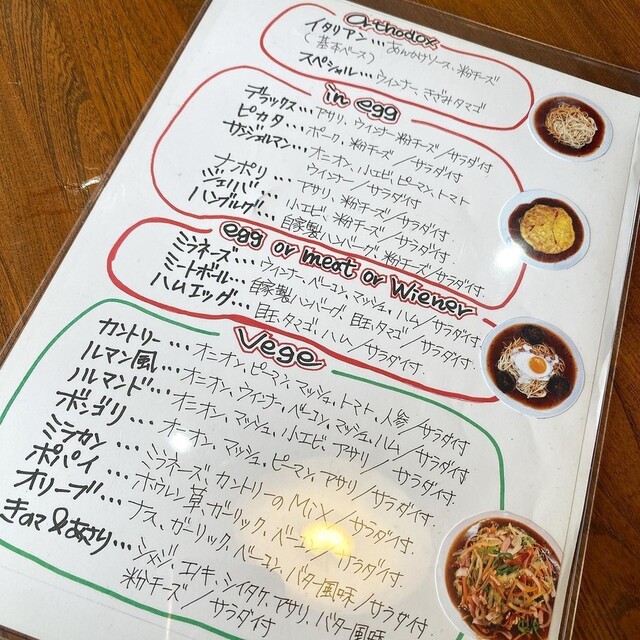 Orthodox
イタリアン…あんかけソース、粉チーズ
(基本ベース)
スペシャル…ウインナー、きざみタマゴ
in egg
デラックス…アサリ、ウインナー、粉チーズ/サラダ付
ピカタ…ポーク、粉チーズ/サラダ付
オニオン、小エビ、ピーマン、トマト
ナポリ… ウインナー/サラダ付
アサリ、粉チーズ/サラダ付.
小エビ、粉チーズ/サラダ付.
ハンブルグ…自家製ハンバーグ、粉チーズ/サラダ付.
egg or meat or Wiener
ミラネーズ…ウインナー、ベーコン、マッシュ、ハム/サラダ付.
ミートボール…自家製ハンバーグ、目玉タマゴ/サラダ付.
ハムエッグ…目玉タマゴ、ハム/サラダ付.
Vege
カントリー…オニオン、ピーマン、マッシュ、トマト、人参/サラダ付
ルマン風…オニオン、ウインナー、ベーコン、マッシュ、ハム/サラダ付
ノルマンド…オニオン、マッシュ、小エビ、アサリ/サラダ付
ボンゴリ…オニオン、マッシュ、ピーマン、アサリ/サラダ付.
ミラカン…ミラネーズ、カントリーのMix/サラダ付.
ポパイ…ホウレン草、ガーリック、ベーコン/サラダ付.
オリーブ…ナス、ガーリック、ベーコン、バター風味/サラダ付
きのこ&あさり…シメジ、エノキ、シイタケ、アサリ、バター風味
粉チーズ/サラダ付